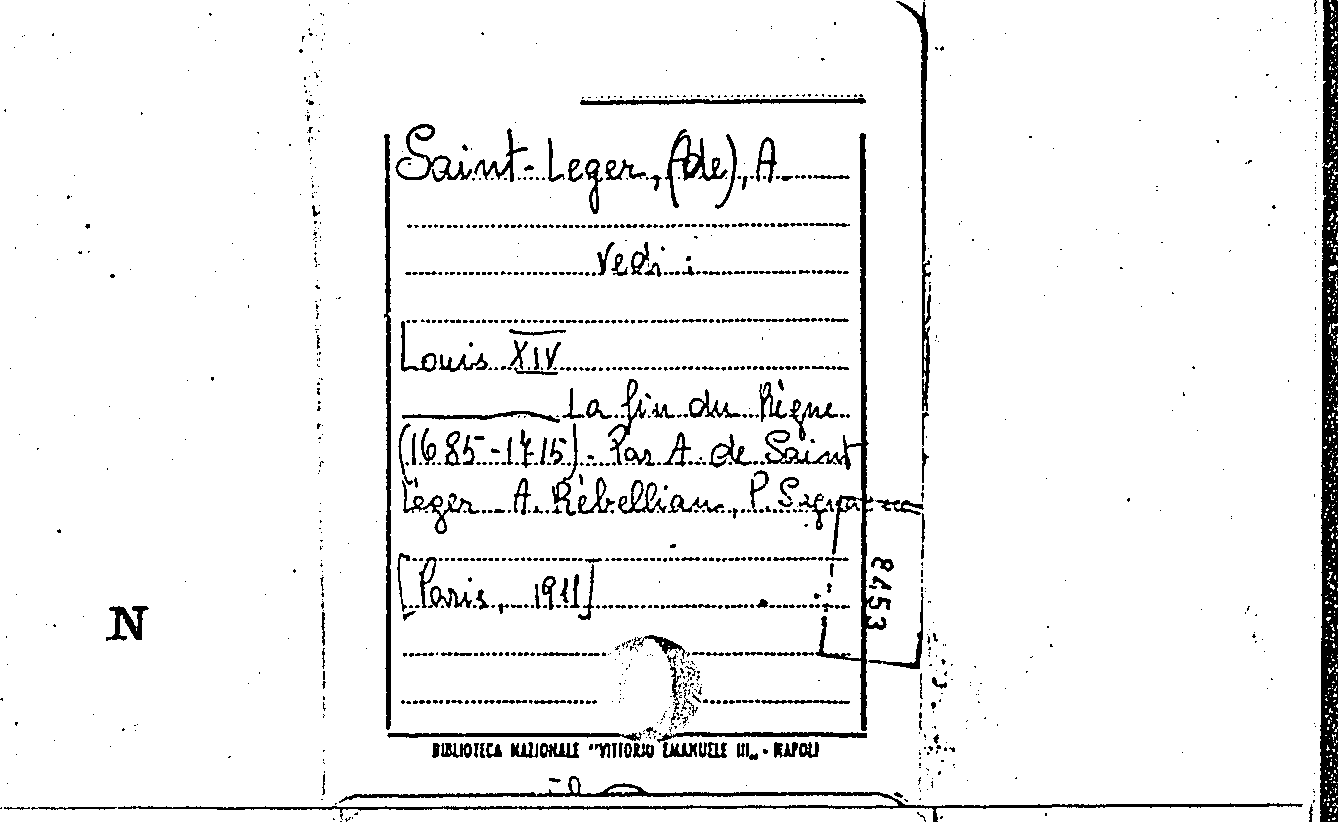 Saint-Leger, (de), A.
Vedi:
Louis XIV
La fin du Règne
(1685-1715). Par A. de Saint
Léger A. Rébelliau, P. Sagnac
[Paris, 1911]
8453
N
BIBLIOTECA NAZIONALE "VITTORIO EMANUELE III„ - NAPOLI